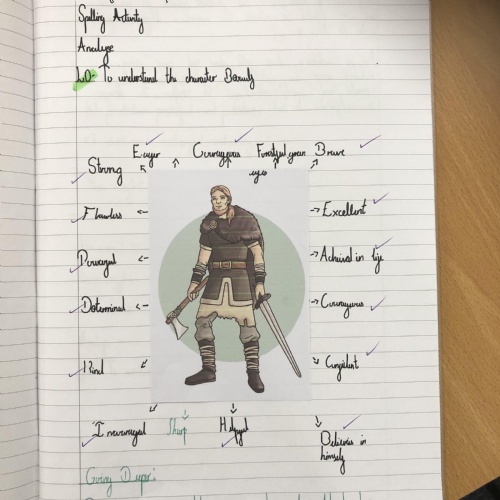 Spelling Activity
Analyse
LO:- To understand the character Beowulf
Eager Courageous Forestful green Brave
eyes
Strong
Flawless Excellent
Powerful Achieved in life
Determined Courageous
Kind Confident
Sharp Helpful
Believes in
himself
Going Deeper: